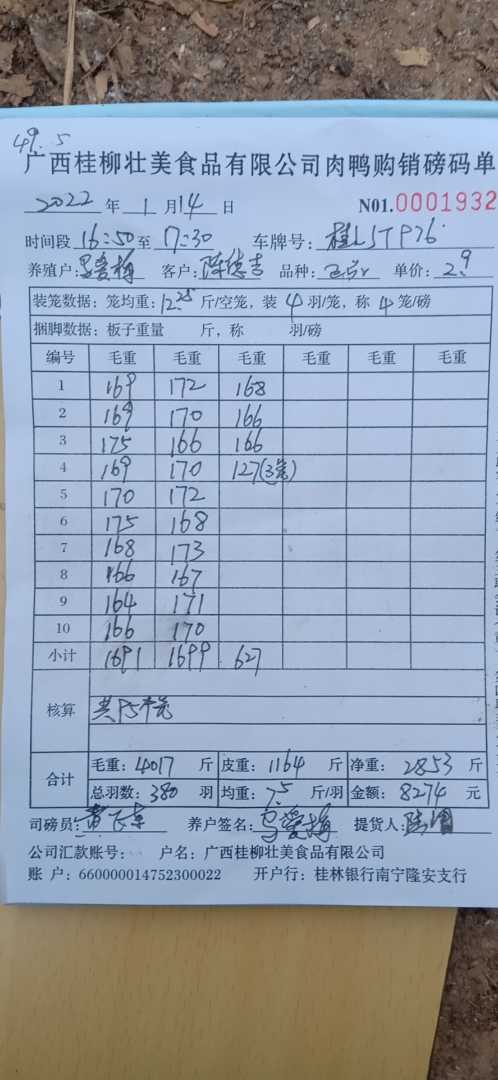 49.5
广西桂柳壮美食品有限公司肉鸭购销磅码单
2022 年 1 月 14 日 N01.0001932
时间段 16:50 至 17:30 车牌号:
养殖户: 客户: 品种: 单价: 2.9
装笼数据: 笼均重: 12.25 斤/空笼, 装 4 羽/笼, 称 4 笼/磅
捆脚数据: 板子重量 斤, 称 羽/磅
编号 毛重 毛重 毛重 毛重 毛重 毛重
1 169 172 168
2 169 170 166
3 175 166 166
4 169 170 127(3笼)
5 170 172
6 175 168
7 168 173
8 166 167
9 164 171
10 166 170
小计 1691 1699 627
核算 共95笼
合计 毛重: 4017 斤 皮重: 1164 斤 净重: 2853 斤
总羽数: 380 羽 均重: 7.5 斤/羽 金额: 8274 元
司磅员: 养户签名: 提货人:
公司汇款账号: 户名: 广西桂柳壮美食品有限公司
账 户: 660000014752300022 开户行: 桂林银行南宁隆安支行